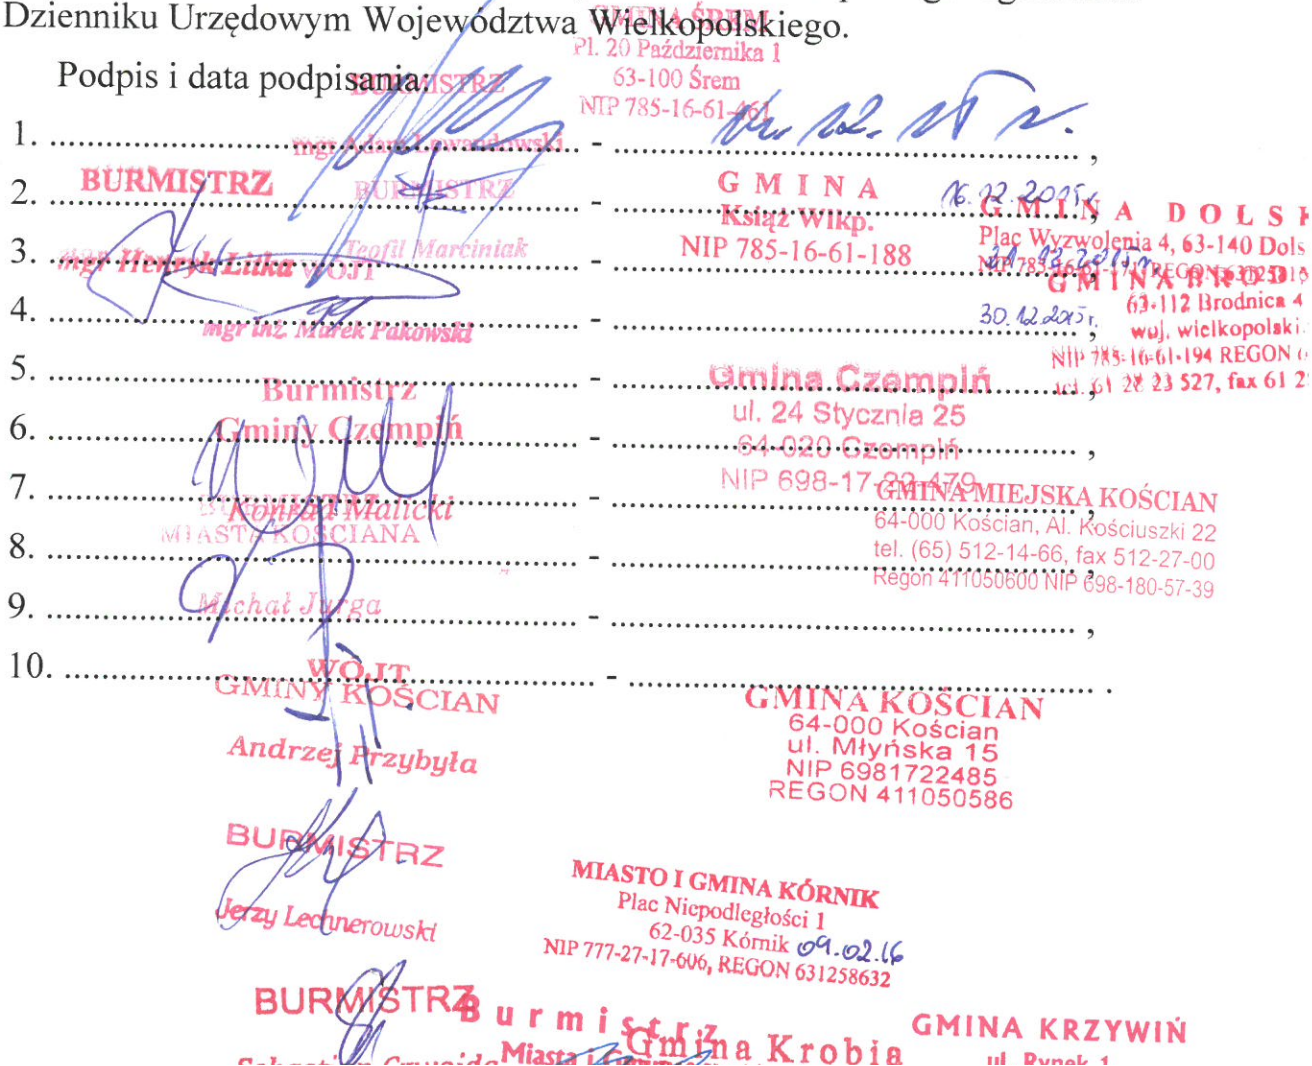 Dzienniku Urzędowym Województwa Wielkopolskiego.
GMINA ŚREM
Pl. 20 Października 1
63-100 Śrem
NIP 785-16-61-461
Podpis i data podpisania:
BURMISTRZ
mgr Adam Lewandowski
1. .......... - .......... ,
BURMISTRZ
BURMISTRZ
Teofil Marciniak
2. .......... - .......... ,
G M I N A
Książ Wlkp.
NIP 785-16-61-188
16.12.2015r.
G M I N A D O L S K
Plac Wyzwolenia 4, 63-140 Dols
3. .......... - .......... ,
mgr Henryk Litka
WÓJT
mgr inż. Marek Pakowski
G M I N A B R O D
63-112 Brodnica 4
woj. wielkopolski
NIP 785-16-61-194 REGON
tel. 61 28 23 527, fax 61 2
4. .......... - .......... ,
30.12.2015r.
5. .......... - .......... ,
Burmistrz
Gminy Czempiń
Konrad Malicki
Gmina Czempiń
ul. 24 Stycznia 25
64-020 Czempiń
NIP 698-17-22-479
6. .......... - .......... ,
7. .......... - .......... ,
BURMISTRZ
MIASTA KOŚCIANA
Michał Jurga
GMINA MIEJSKA KOŚCIAN
64-000 Kościan, Al. Kościuszki 22
tel. (65) 512-14-66, fax 512-27-00
Regon 411050600 NIP 698-180-57-39
8. .......... - .......... ,
9. .......... - .......... ,
10. .......... - .......... .
WÓJT
GMINY KOŚCIAN
Andrzej Przybyła
GMINA KOŚCIAN
64-000 Kościan
ul. Młyńska 15
NIP 6981722485
REGON 411050586
BURMISTRZ
Jerzy Lechnerowski
MIASTO I GMINA KÓRNIK
Plac Niepodległości 1
62-035 Kórnik 09.02.16
NIP 777-27-17-606, REGON 631258632
BURMISTRZ
Burmistrz
Miasta i
Gmina Krobia
GMINA KRZYWIŃ
ul. Rynek 1